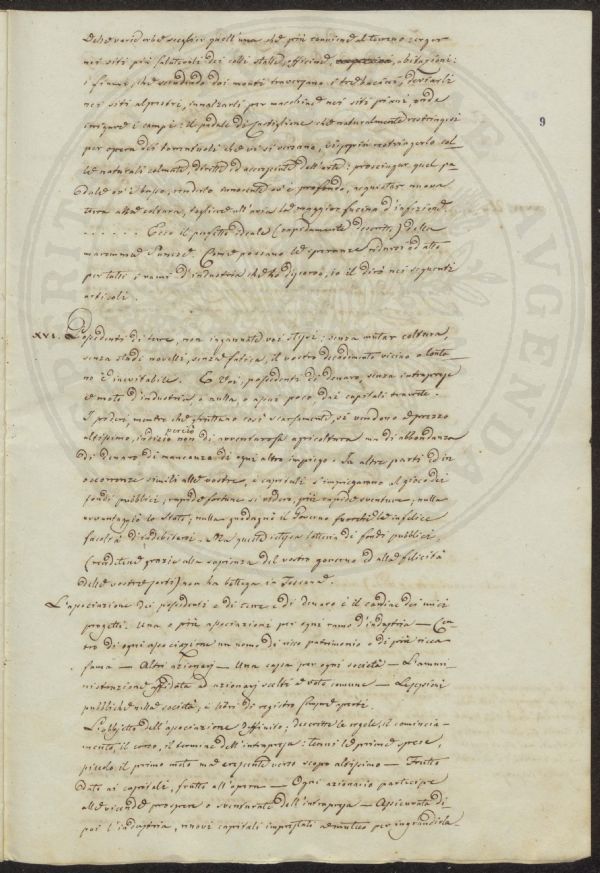 Delle varie erbe sceglier quell'una che più conviene al terreno: erger
nei siti più salutevoli dei colli stalle, officine, abitazioni:
i fiumi, che scendendo dai monti traversano i tre bacini, deviarli
nei siti alpestri, innalzarli per macchine nei siti piani, onde
irrigare i campi: il padule di Castiglione che naturalmente restringesi
per opera dei torrentuoli che vi si versano, vieppiù restringerlo col-
le naturali colmate, dirette ed accresciute dall'arte: prosciugar quel pa-
dule ov'è basso, renderlo innocente ov'è profondo, acquistar nuova
terra alla coltura, togliere all'aria la maggior fucina d'infezione.
. . . . . . Ecco il perfetto ideale (rapidamente descritto) della
maremma Sanese. Come possano le speranze ridursi ad atto
per tutti i rami d'industria che ho discorso, io il dirò nei seguenti
articoli.
9
XVI. Possidenti di terre, non ingannate voi stessi: senza mutar coltura,
senza studi novelli, senza fatica, il vostro decadimento vicino o lonta-
no è inevitabile. E voi, possidenti di denaro, senza intraprese
e moto d'industria o nulla, o assai poco, dai capitali traurete.
I poderi, mentre che fruttano così scarsamente, si vendono a prezzo
altissimo, indizio perciò non di avventurosa agricoltura ma di abbondanza
di denaro di mancanza di ogni altro impiego. In altre parti ed in
occorrenze simili alle vostre, i capitali s'impiegarono al gioco dei
fondi pubblici; rapide fortune si videro, più rapide sventure; nulla
avvantaggiò lo Stato, nulla guadagnò il Governo fuorchè la infelice
facoltà di indebitarsi. Ma questa istessa lotteria di fondi pubblici,
(rendetene grazie alla sapienza del vostro governo ed alla felicità
delle vostre sorti) non ha bottega in Toscana.
L'associazione dei possidenti e di terre e di denaro è il cardine dei miei
progetti. Una o più associazione per ogni ramo d'industria — Cen-
tro di ogni associazione un nome di ricco patrimonio o di più ricca
fama — Altri azionarj — Una cassa per ogni società — L'ammi-
nistrazione affidata ad azionarj scelti a voto comune — Le sessioni
pubbliche nella società, i libri di registro sempre aperti.
L'obbjetto dell'associazione definito; descritte le regole, il comincia-
mento, il corso, il termine dell'intrapresa: tenui le prime spese,
piccolo il primo moto ma crescente verso scopo altissimo — Frutto
dato ai capitali, frutto all'opera — Ogni azionario partecipe
alle vicende prospere o sventurate dell'intrapresa — Assicurata di-
poi l'industria, nuovi capitali imprestati a mutuo per ingrandirla.